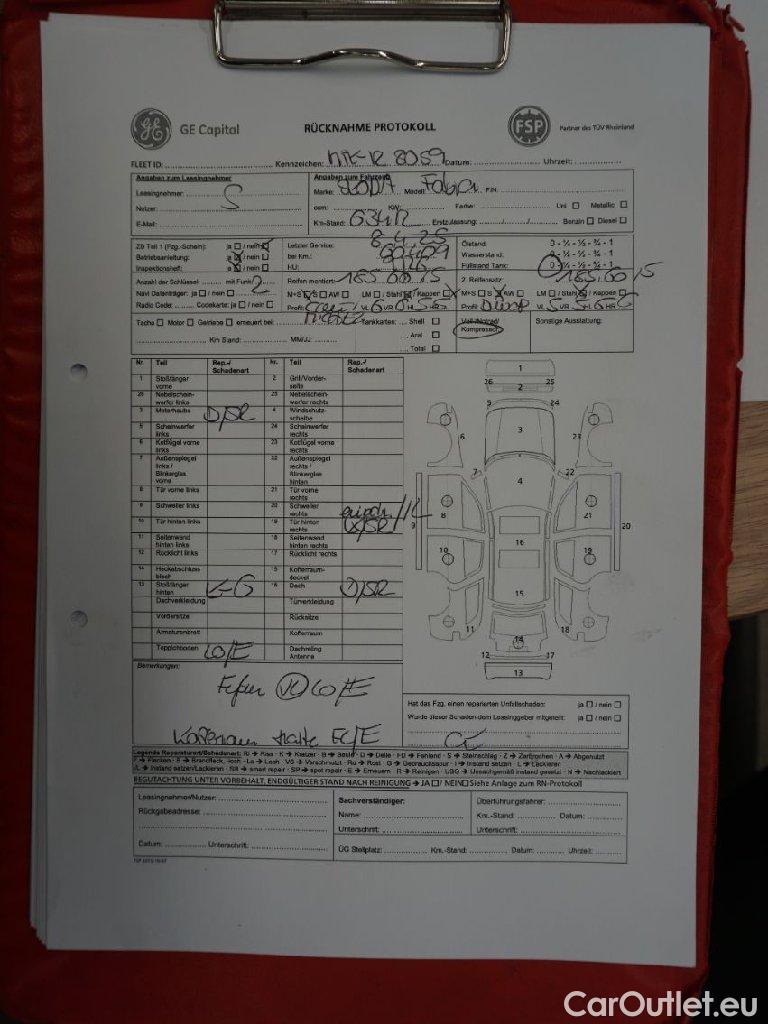 GE Capital RÜCKNAHME PROTOKOLL FSP Partner des TÜV Rheinland
FLEET ID: Kennzeichen: 8059 Datum: Uhrzeit:
Angaben zum Leasingnehmer Angaben zum Fahrzeug
Leasingnehmer: Marke: SKODA Modell: Fabia FIN:
Nutzer: S ccm: KW: Farbe: Uni Metallic
E-Mail: Km-Stand: Erstzulassung: Benzin Diesel
ZB Teil 1 (Fzg.-Schein): ja / nein Letzter Service: 8.4.25 Ölstand 0 - ¼ - ½ - ¾ - 1
Betriebsanleitung: ja / nein bei Km.: Wasserstand 0 - ¼ - ½ - ¾ - 1
Inspektionsheft: ja / nein HU: Füllstand Tank: 0 - ¼ - ½ - ¾ - 1
Anzahl der Schlüssel: mit Funk: 2 Reifen montiert: 185.60 15 2. Reifensatz: 185.60 15
Navi Datenträger: ja / nein M+S S AW LM Stahl / Kappen M+S S AW LM / Stahl / Kappen
Radio Code: Codekarte: ja / nein Profil: VL 6 VR 6 HL 5 HR 5 Profil: Dunlop VL 5 VR 5 HL 6 HR 6
Tacho Motor Getriebe erneuert bei Tankkarten: Shell Voll-/Notrad/ Kompressor Sonstige Ausstattung:
Aral
Km Stand: MM/JJ: Total
Nr. Teil Rep.-/ Schadenart Nr. Teil Rep.-/ Schadenart
1 Stoßfänger vorne 2 Grill/Vorderseite
26 Nebelscheinwerfer links 25 Nebelscheinwerfer rechts
3 Motorhaube D/SR 4 Windschutzscheibe
5 Scheinwerfer links 24 Scheinwerfer rechts
6 Kotflügel vorne links 23 Kotflügel vorne rechts
7 Außenspiegel links / Blinkerglas vorne 22 Außenspiegel rechts / Blinkerglas hinten
8 Tür vorne links 21 Tür vorne rechts
9 Schweller links 20 Schweller rechts
10 Tür hinten links 19 Tür hinten rechts
11 Seitenwand hinten links 18 Seitenwand hinten rechts
12 Rücklicht links 17 Rücklicht rechts
14 Heckabschlussblech 15 Kofferraumdeckel
13 Stoßfänger hinten 16 Dach D/SR
Dachverkleidung Türverkleidung
Vordersitze Rücksitze
Armaturenbrett Kofferraum
Teppichboden LO/E Dachreling Antenne
1
25 26
2
5 24
3
6 23
7 22
4
8 21
9 20
16
10 19
15
11 18
14
12 17
13
Bemerkungen:
LO/E
E/E
Hat das Fzg. einen reparierten Unfallschaden: ja / nein
Wurde dieser Schaden dem Leasinggeber mitgeteilt: ja / nein
Legende Reparaturart/Schadenart: RI → Riss - K → Kratzer - B → Beule - D → Delle - FD → Fehlend - S → Steinschlag - Z → Zerbrochen - A → Abgenutzt
F → Flecken - B → Brandfleck, -loch - Lo → Loch - VS → Verschmutzt - Ro → Rost - G → Gebrauchsspur - I → Instand setzen - L → Lackieren
IL → Instand setzen/Lackieren - SR → smart repair - SP → spot repair - E → Erneuern - R → Reinigen - USG → Unsachgemäß instand gesetzt - N → Nachlackiert
BEGUTACHTUNG UNTER VORBEHALT, ENDGÜLTIGER STAND NACH REINIGUNG → JA / NEIN Siehe Anlage zum RN-Protokoll
Leasingnehmer/Nutzer: Sachverständiger: Überführungsfahrer:
Rückgabeadresse: Name: Km.-Stand: Datum:
Unterschrift: Unterschrift:
Datum: Unterschrift: ÜG Stellplatz: Km.-Stand: Datum: Uhrzeit:
CarOutlet.eu